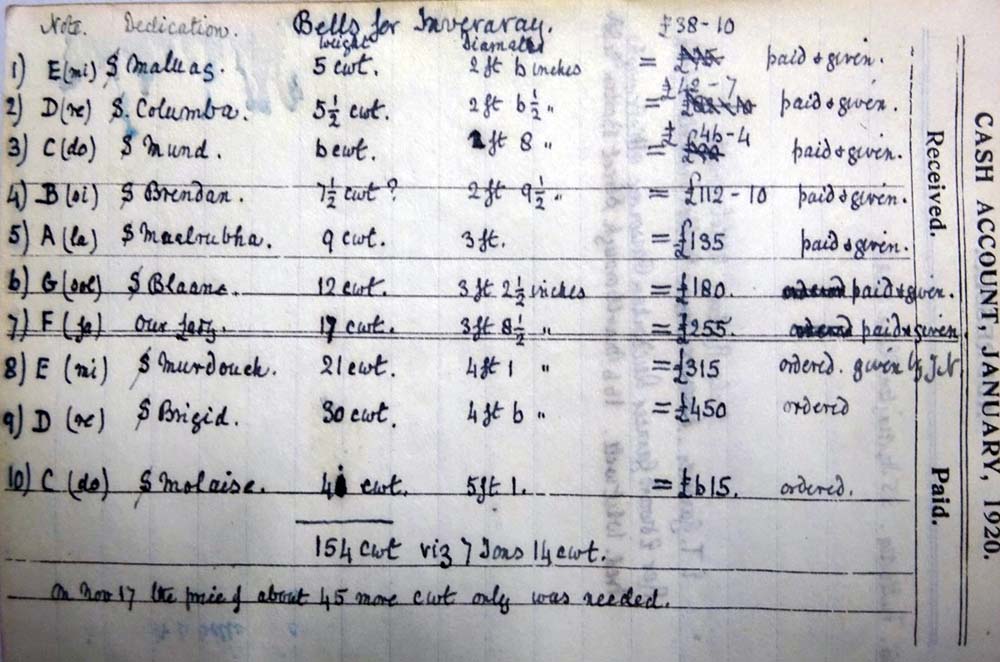 Note. Dedication. Bells for Inveraray. £38-10
Weight Diameter
1) E (mi) S Maluag. 5 cwt. 2 ft 6 inches = £75 paid & given.
2) D (re) S. Columba. 5½ cwt. 2 ft 6½ " = £42-7 paid & given.
3) C (do) S Mund. 6 cwt. 2 ft 8 " = £46-4 paid & given.
4) B (si) S Brendan. 7½ cwt ? 2 ft 9½ " = £112-10 paid & given.
5) A (la) S Maelrubha. 9 cwt. 3 ft. = £135 paid & given.
6) G (sol) S Blaane. 12 cwt. 3 ft 2½ inches = £180. ordered paid & given.
7) F (fa) Our Lady. 17 cwt. 3 ft 8½ " = £255. ordered paid & given
8) E (mi) S Murdouch. 21 cwt. 4 ft 1 " = £315 ordered. given by
9) D (re) S Brigid. 30 cwt. 4 ft 6 " = £450 ordered
10) C (do) S Molaise. 41 cwt. 5 ft 1. = £615. ordered.
154 cwt viz 7 Tons 14 cwt.
On Nov 17 the price of about 45 more cwt only was needed.
CASH ACCOUNT, JANUARY, 1920.
Received.
Paid.